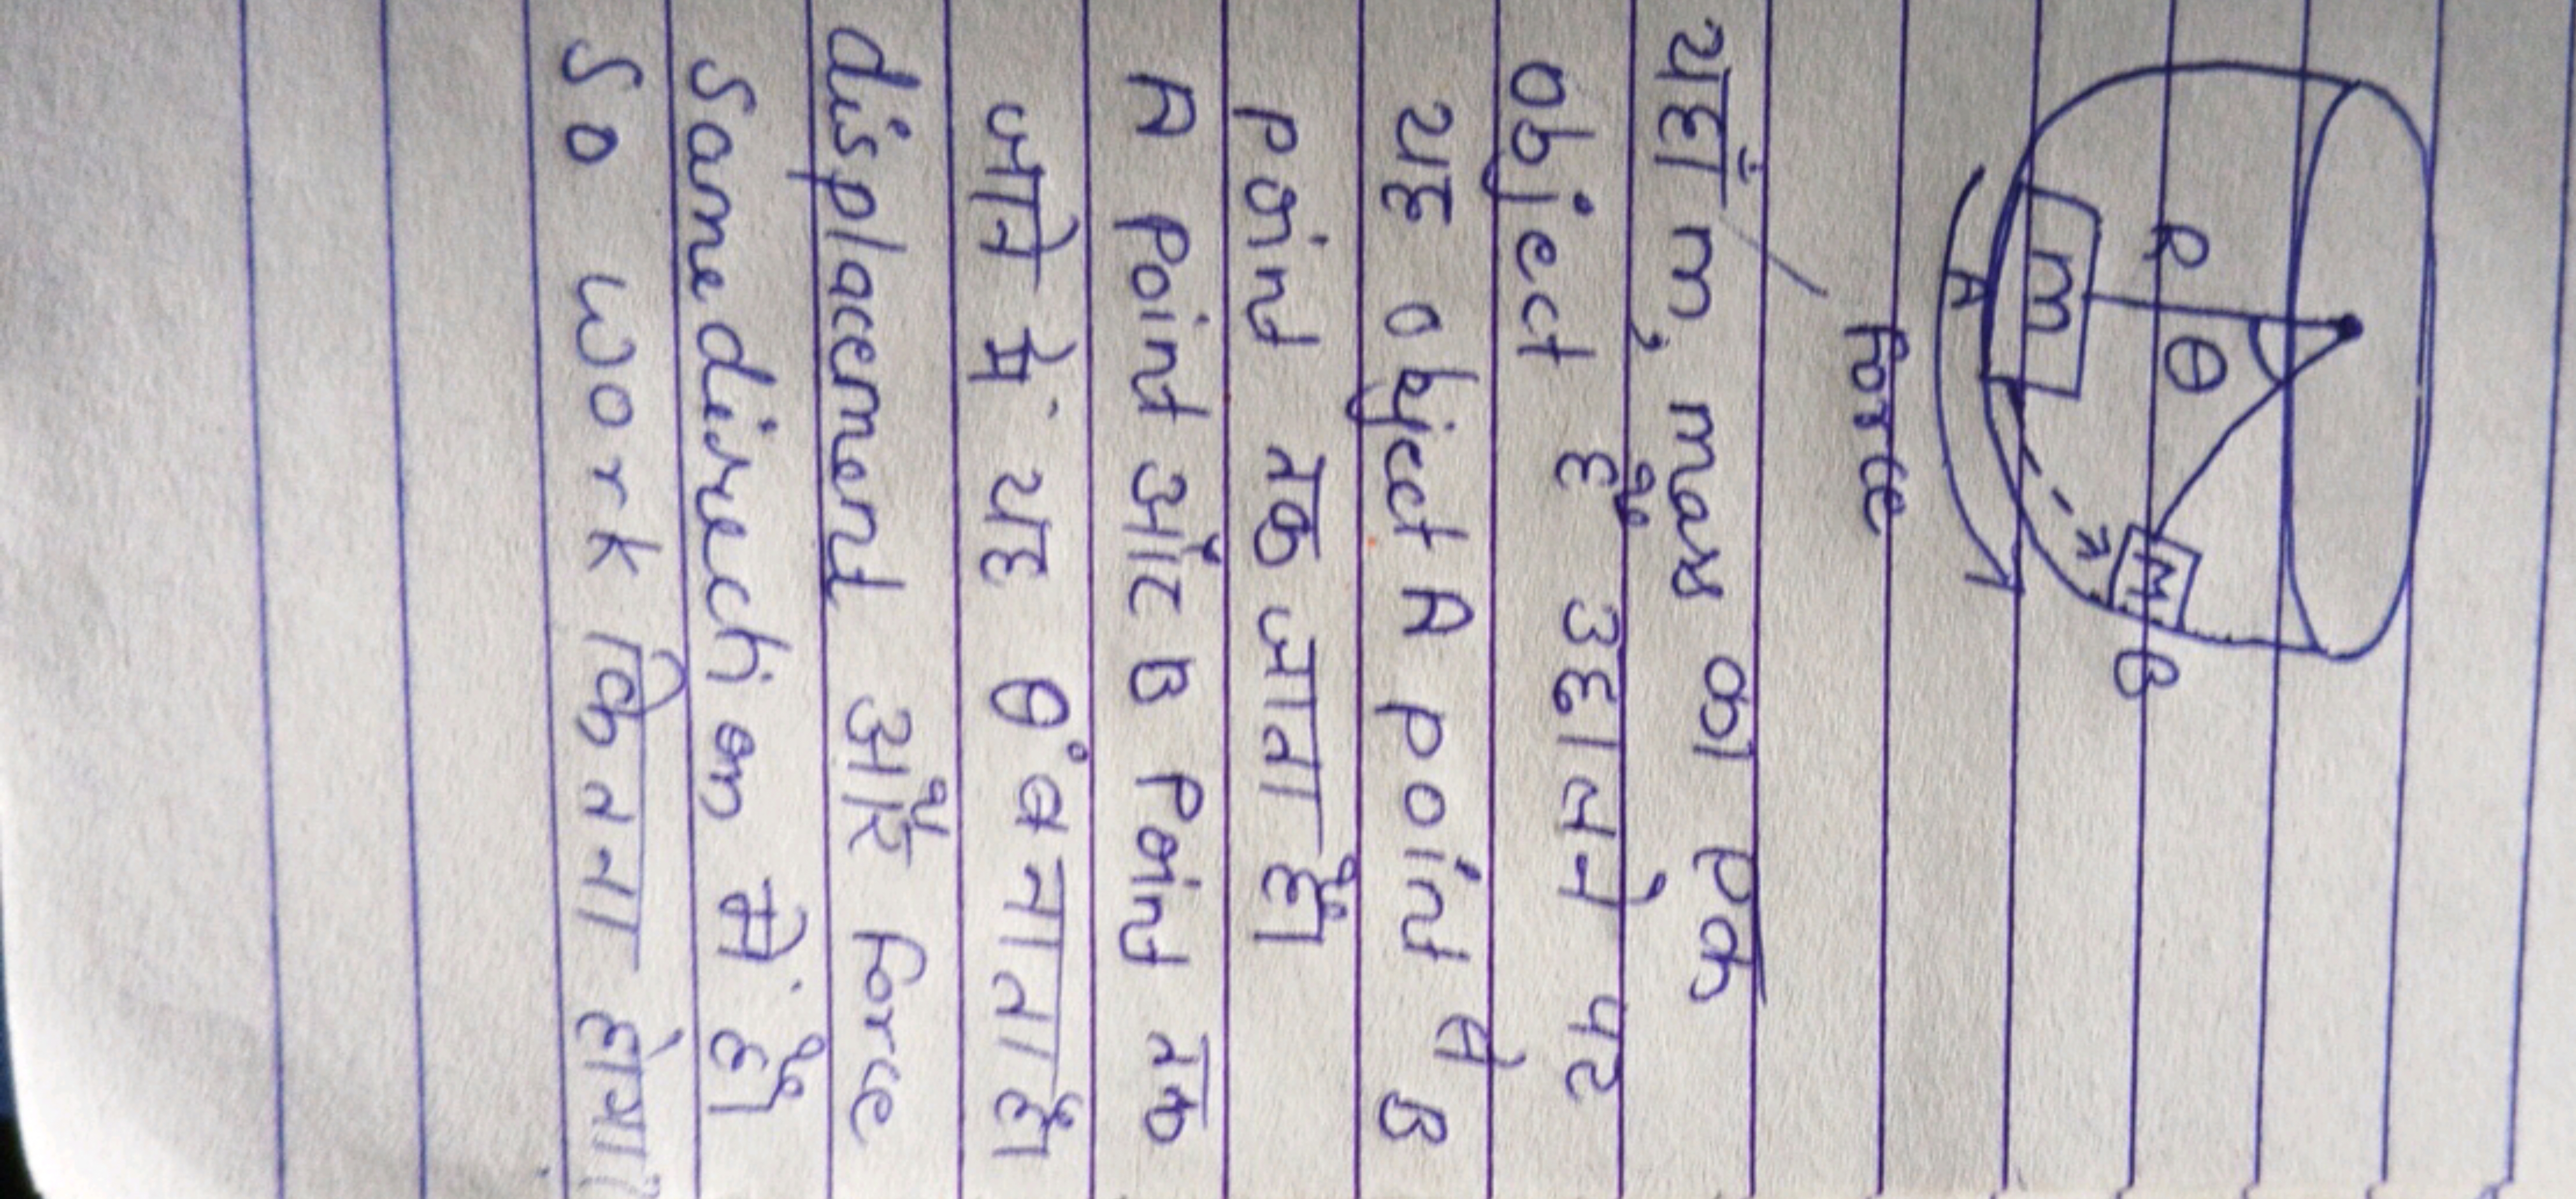 R
θ
m
M
B
A
Force
यहाँ m, mass का एक
object है उछालने पर
यह object A point से B
point तक जाता है।
A point और B Point तक
जाने में यह θ° बनाता है।
displacement और force
Same direction में है।
So work कितना होगा?